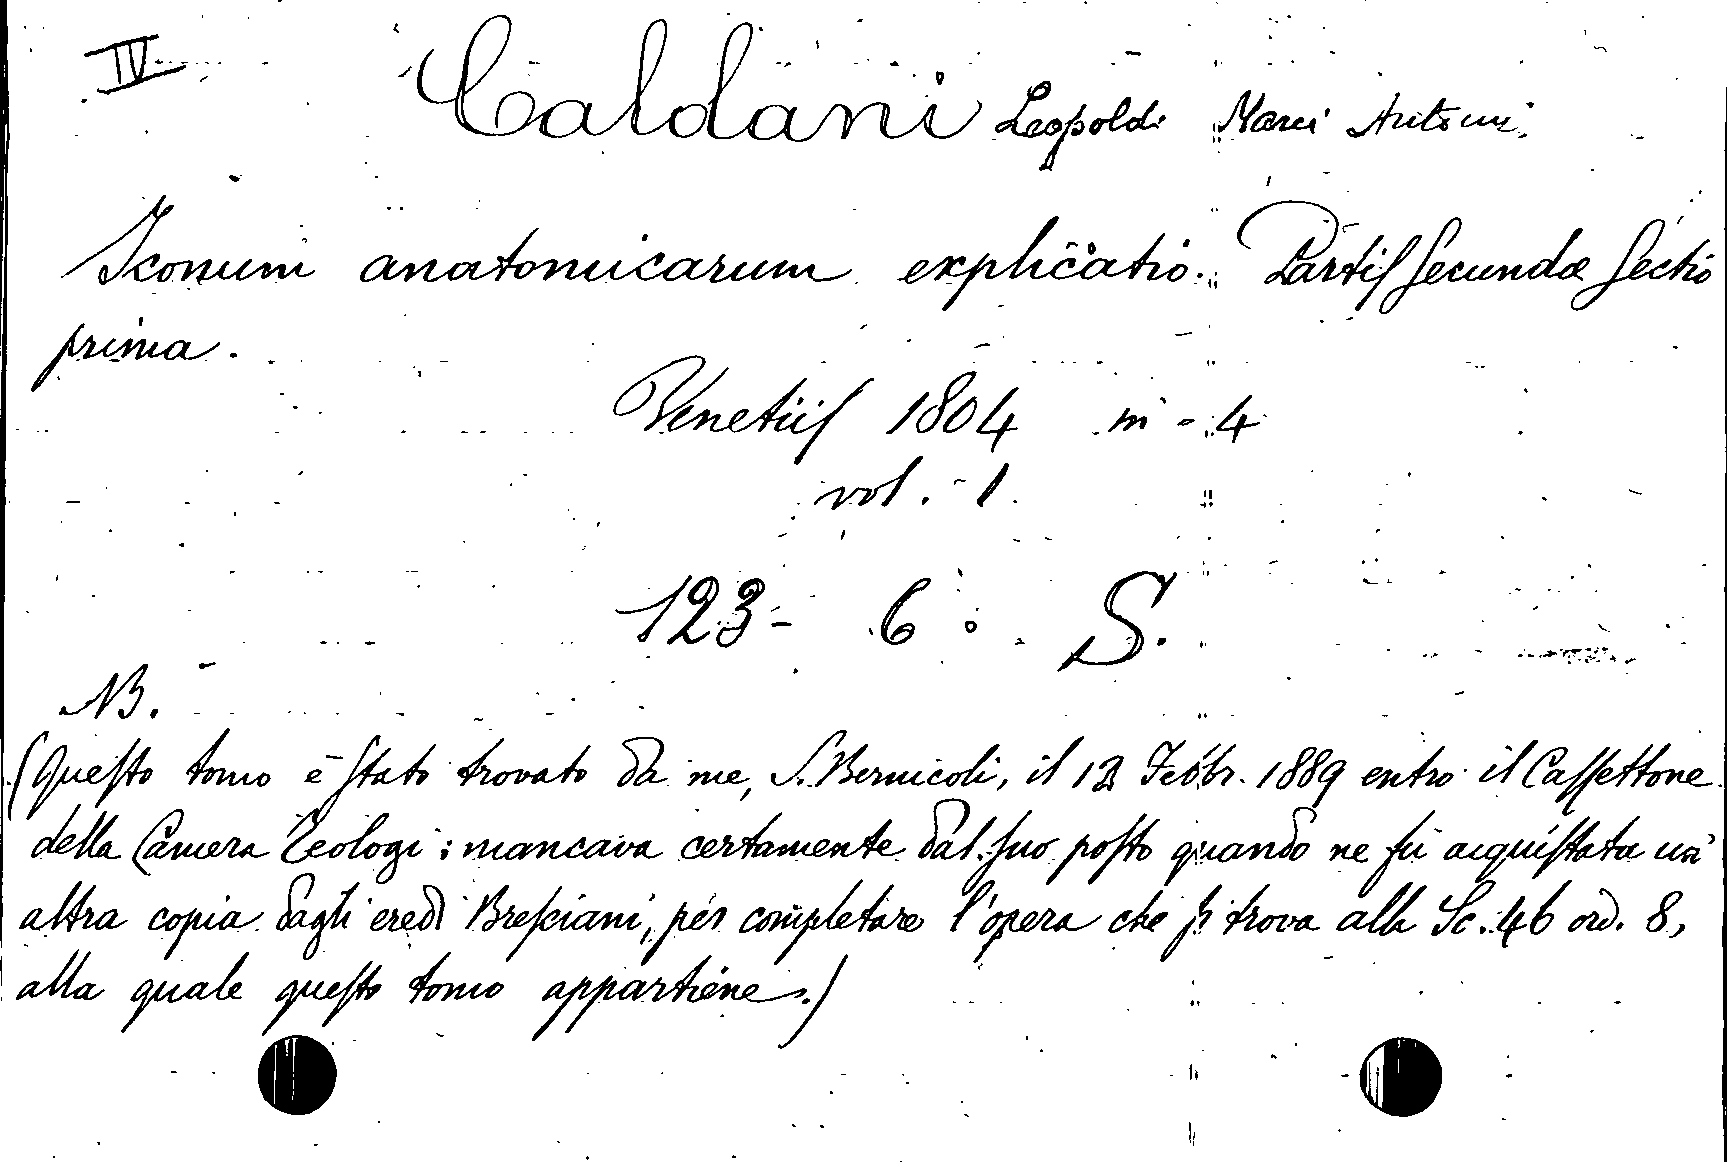 IV
Caldani Leopoldi Marci Antoni
Iconum anatomicarum explicatio. Partis secundæ sectio
prima.
Venetiis 1804 in-4
vol. 1
123- 6 S.
NB.
(Questo tomo è stato trovato da me, S. Bernicoli, il 12 Febbr. 1889 entro il Cassettone
della Camera Teologi: mancava certamente dal suo posto quando ne fu acquistata un'
altra copia dagli eredi Bresciani, per completare l'opera che si trova alla Sc. 46 ord. 8,
alla quale questo tomo appartiene.)